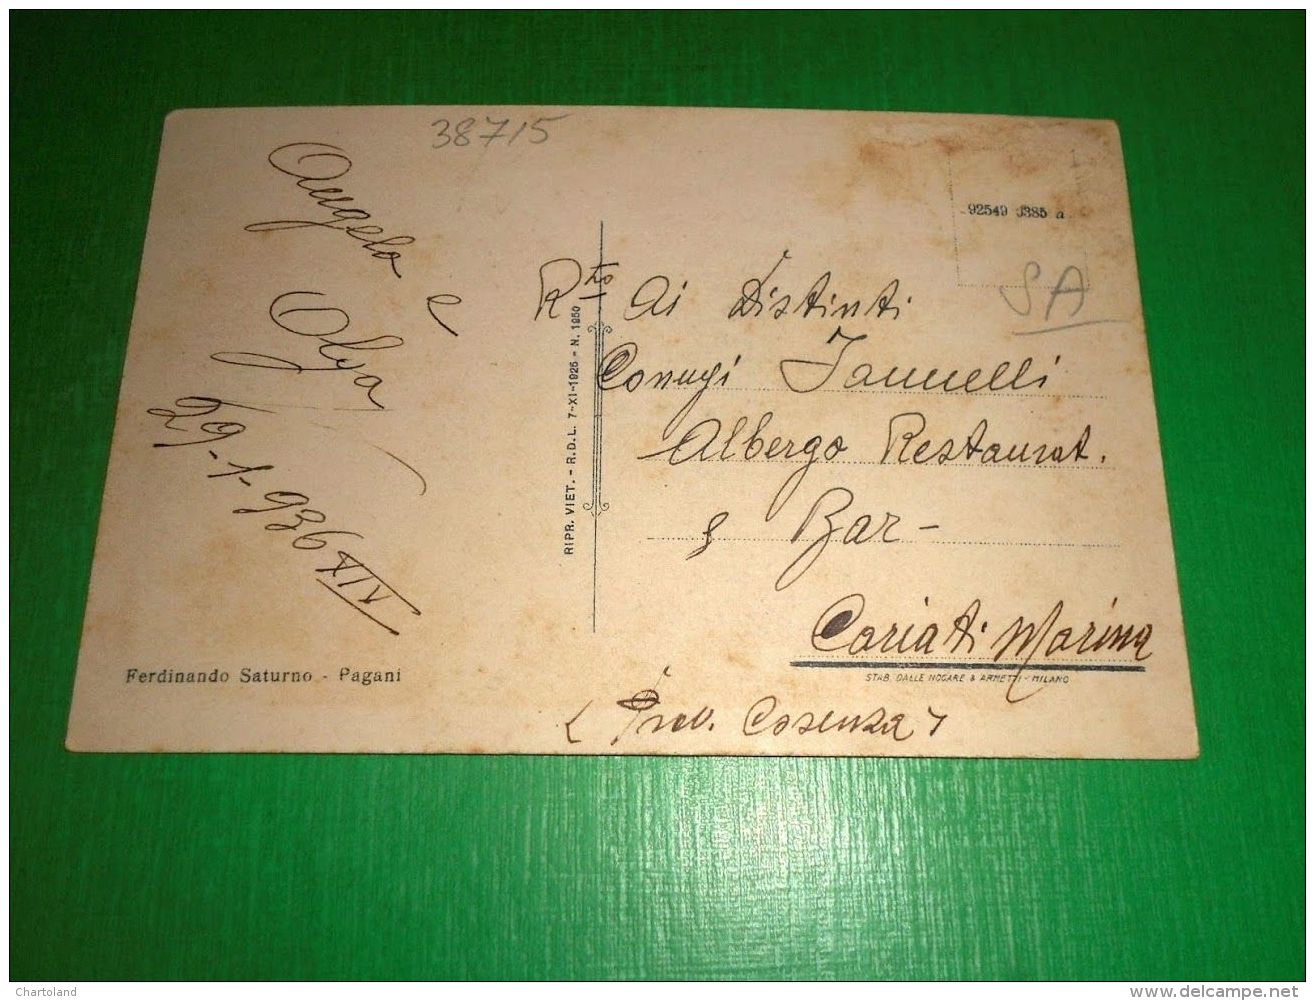 38715
Angelo e
Olga
29-1-936 XIV
Ferdinando Saturno - Pagani
RIPR. VIET. - R.D.L. 7-XI-1925 - N. 1950
92549 0385 a
SA
Rto Ai Distinti
Conugi Iannelli
Albergo Restaurat.
e Bar -
Cariati Marina
STAB. DALLE NOGARE & ARMETTI - MILANO
( Prov. Cosenza )
Chartoland
www.delcampe.net